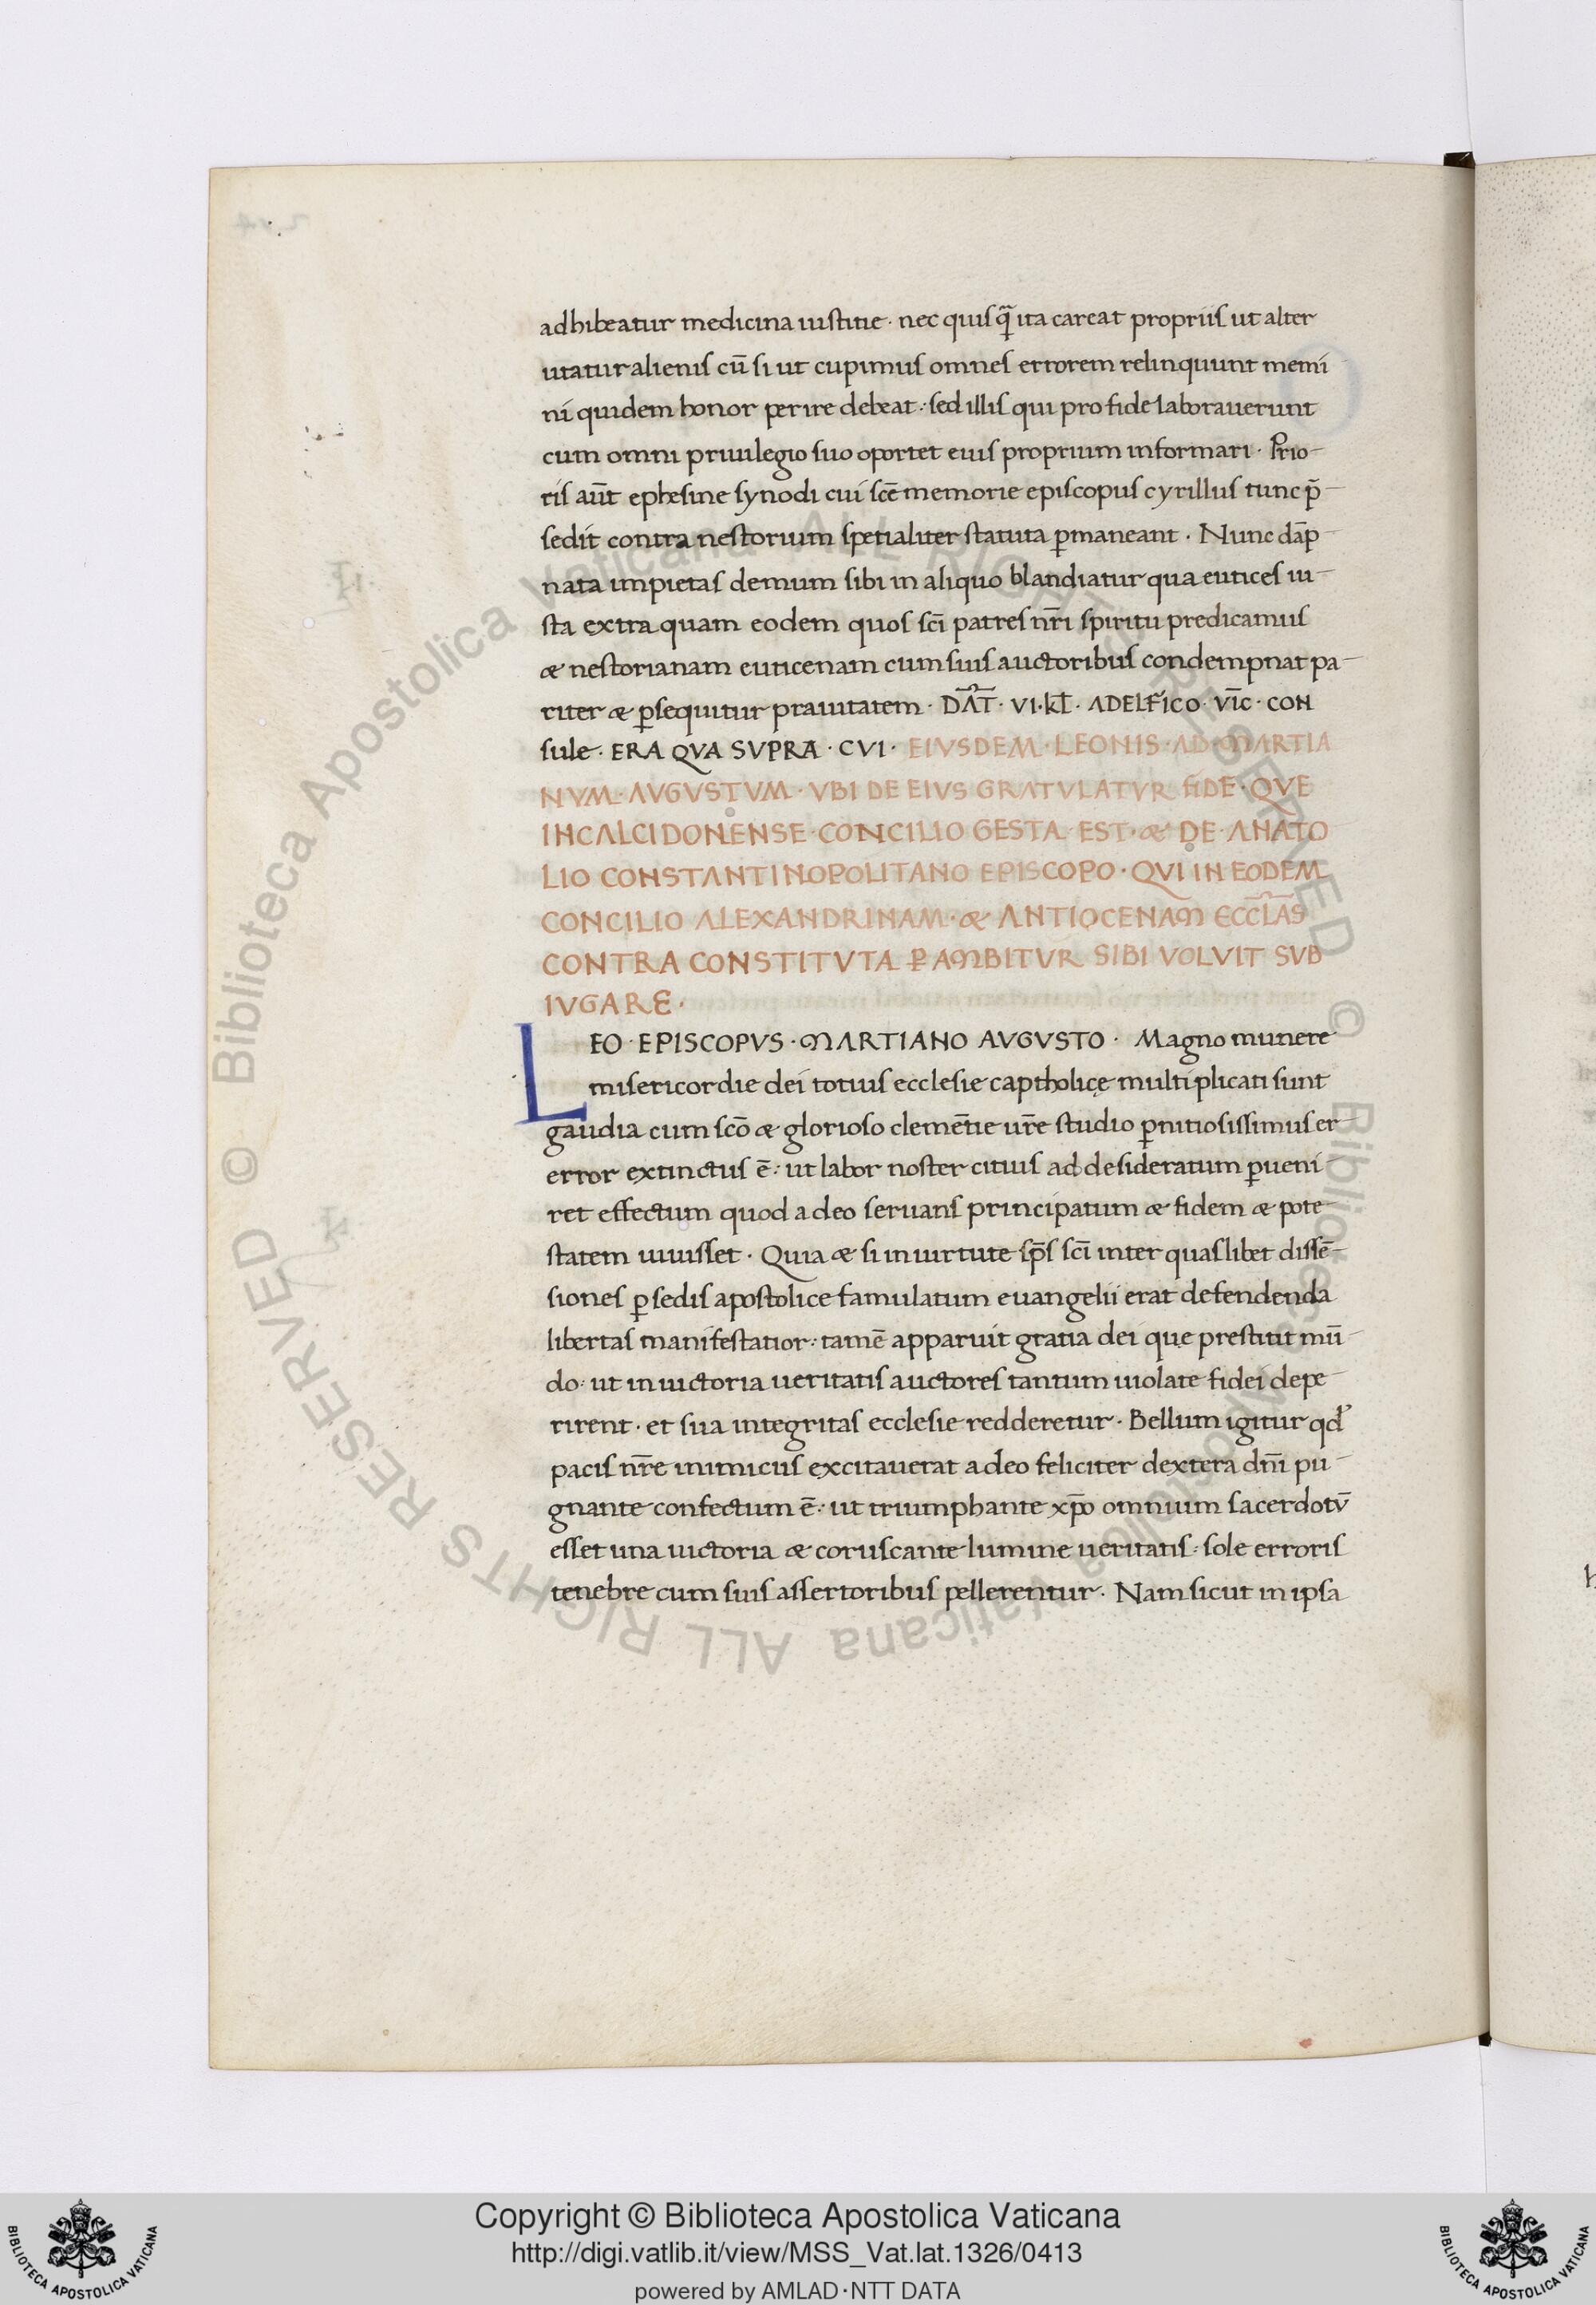 adhibeatur medicina iustitie · nec quisq̃ ita careat propriis ut alter
utatur alienis cū si ut cupimus omnes errorem relinquunt memi
ni quidem honor perire debeat : sed illis qui pro fide laborauerunt
cum omni priuilegio suo oportet eius proprium informari · Prio-
ris aūt ephesine synodi cui scē memorie episcopus cyrillus tunc p̄-
sedit contra nestorium spetialiter statuta ꝑmaneant · Nunc dāp-
nata impietas demum sibi in aliquo blandiatur qua eutices iu-
sta extra quam eodem quos scī patres nr̄i spiritu predicamus
æ nestorianam euticenam cum suis auctoribus condempnat pa-
riter æ ꝑsequitur prauitatem · DĀT̄ · VI · kƗ · ADELFICO · VĪC · CON
sule · ERA QVA SVPRA · CVI · EIVSDEM · LEONIS · AD · MARTIA
NVM · AVGVSTVM · VBI DE EIVS GRATVLATVR fiDE · QVE
IN CALCIDONENSE · CONCILIO GESTA EST · æ DE · ANATO
LIO CONSTANTINOPOLITANO EPISCOPO · QVI IN EODEM
CONCILIO ALEXANDRINAM · æ ANTIOCENAM ECCL̄AS
CONTRA CONSTITVTA Ꝑ AMBITVR SIBI VOLVIT SVB
IVGARE ·
LEO · EPISCOPVS · MARTIANO AVGVSTO · Magno munere
misericordie dei totius ecclesie captholicę multiplicati sunt
gaudia cum scō æ glorioso clemētie ur̄e studio ꝑnitiosissimus er-
error extinctus ē : ut labor noster citius ad desideratum ꝑueni-
ret effectum quod a deo seruans principatum æ fidem æ pote
statem uiuisset · Quia æ si in uirtute sp̄s scī inter quaslibet dissē-
siones ꝑ sedis apostolice famulatum euangelii erat defendenda
libertas manifestatior : tamē apparuit gratia dei quę prestitit mū-
do : ut in uictoria ueritatis auctores tantum uiolate fidei depe
rirent · et sua integritas ecclesie redderetur · Bellum igitur qd̕
pacis nr̄e inimicus excitauerat a deo feliciter dextera dn̄i pu-
gnante confectum ē : ut triumphante xp̄o omnium sacerdotv̄
esset una uictoria æ coruscante lumine ueritatis : sole erroris
tenebre cum suis assertoribus pellerentur · Nam sicut in ipsa
Copyright © Biblioteca Apostolica Vaticana
http://digi.vatlib.it/view/MSS_Vat.lat.1326/0413
powered by AMLAD·NTT DATA
BIBLIOTECA APOSTOLICA VATICANA
BIBLIOTECA APOSTOLICA VATICANA
© Biblioteca Apostolica Vaticana ALL RIGHTS RESERVED
© Biblioteca Apostolica Vaticana ALL RIGHTS RESERVED